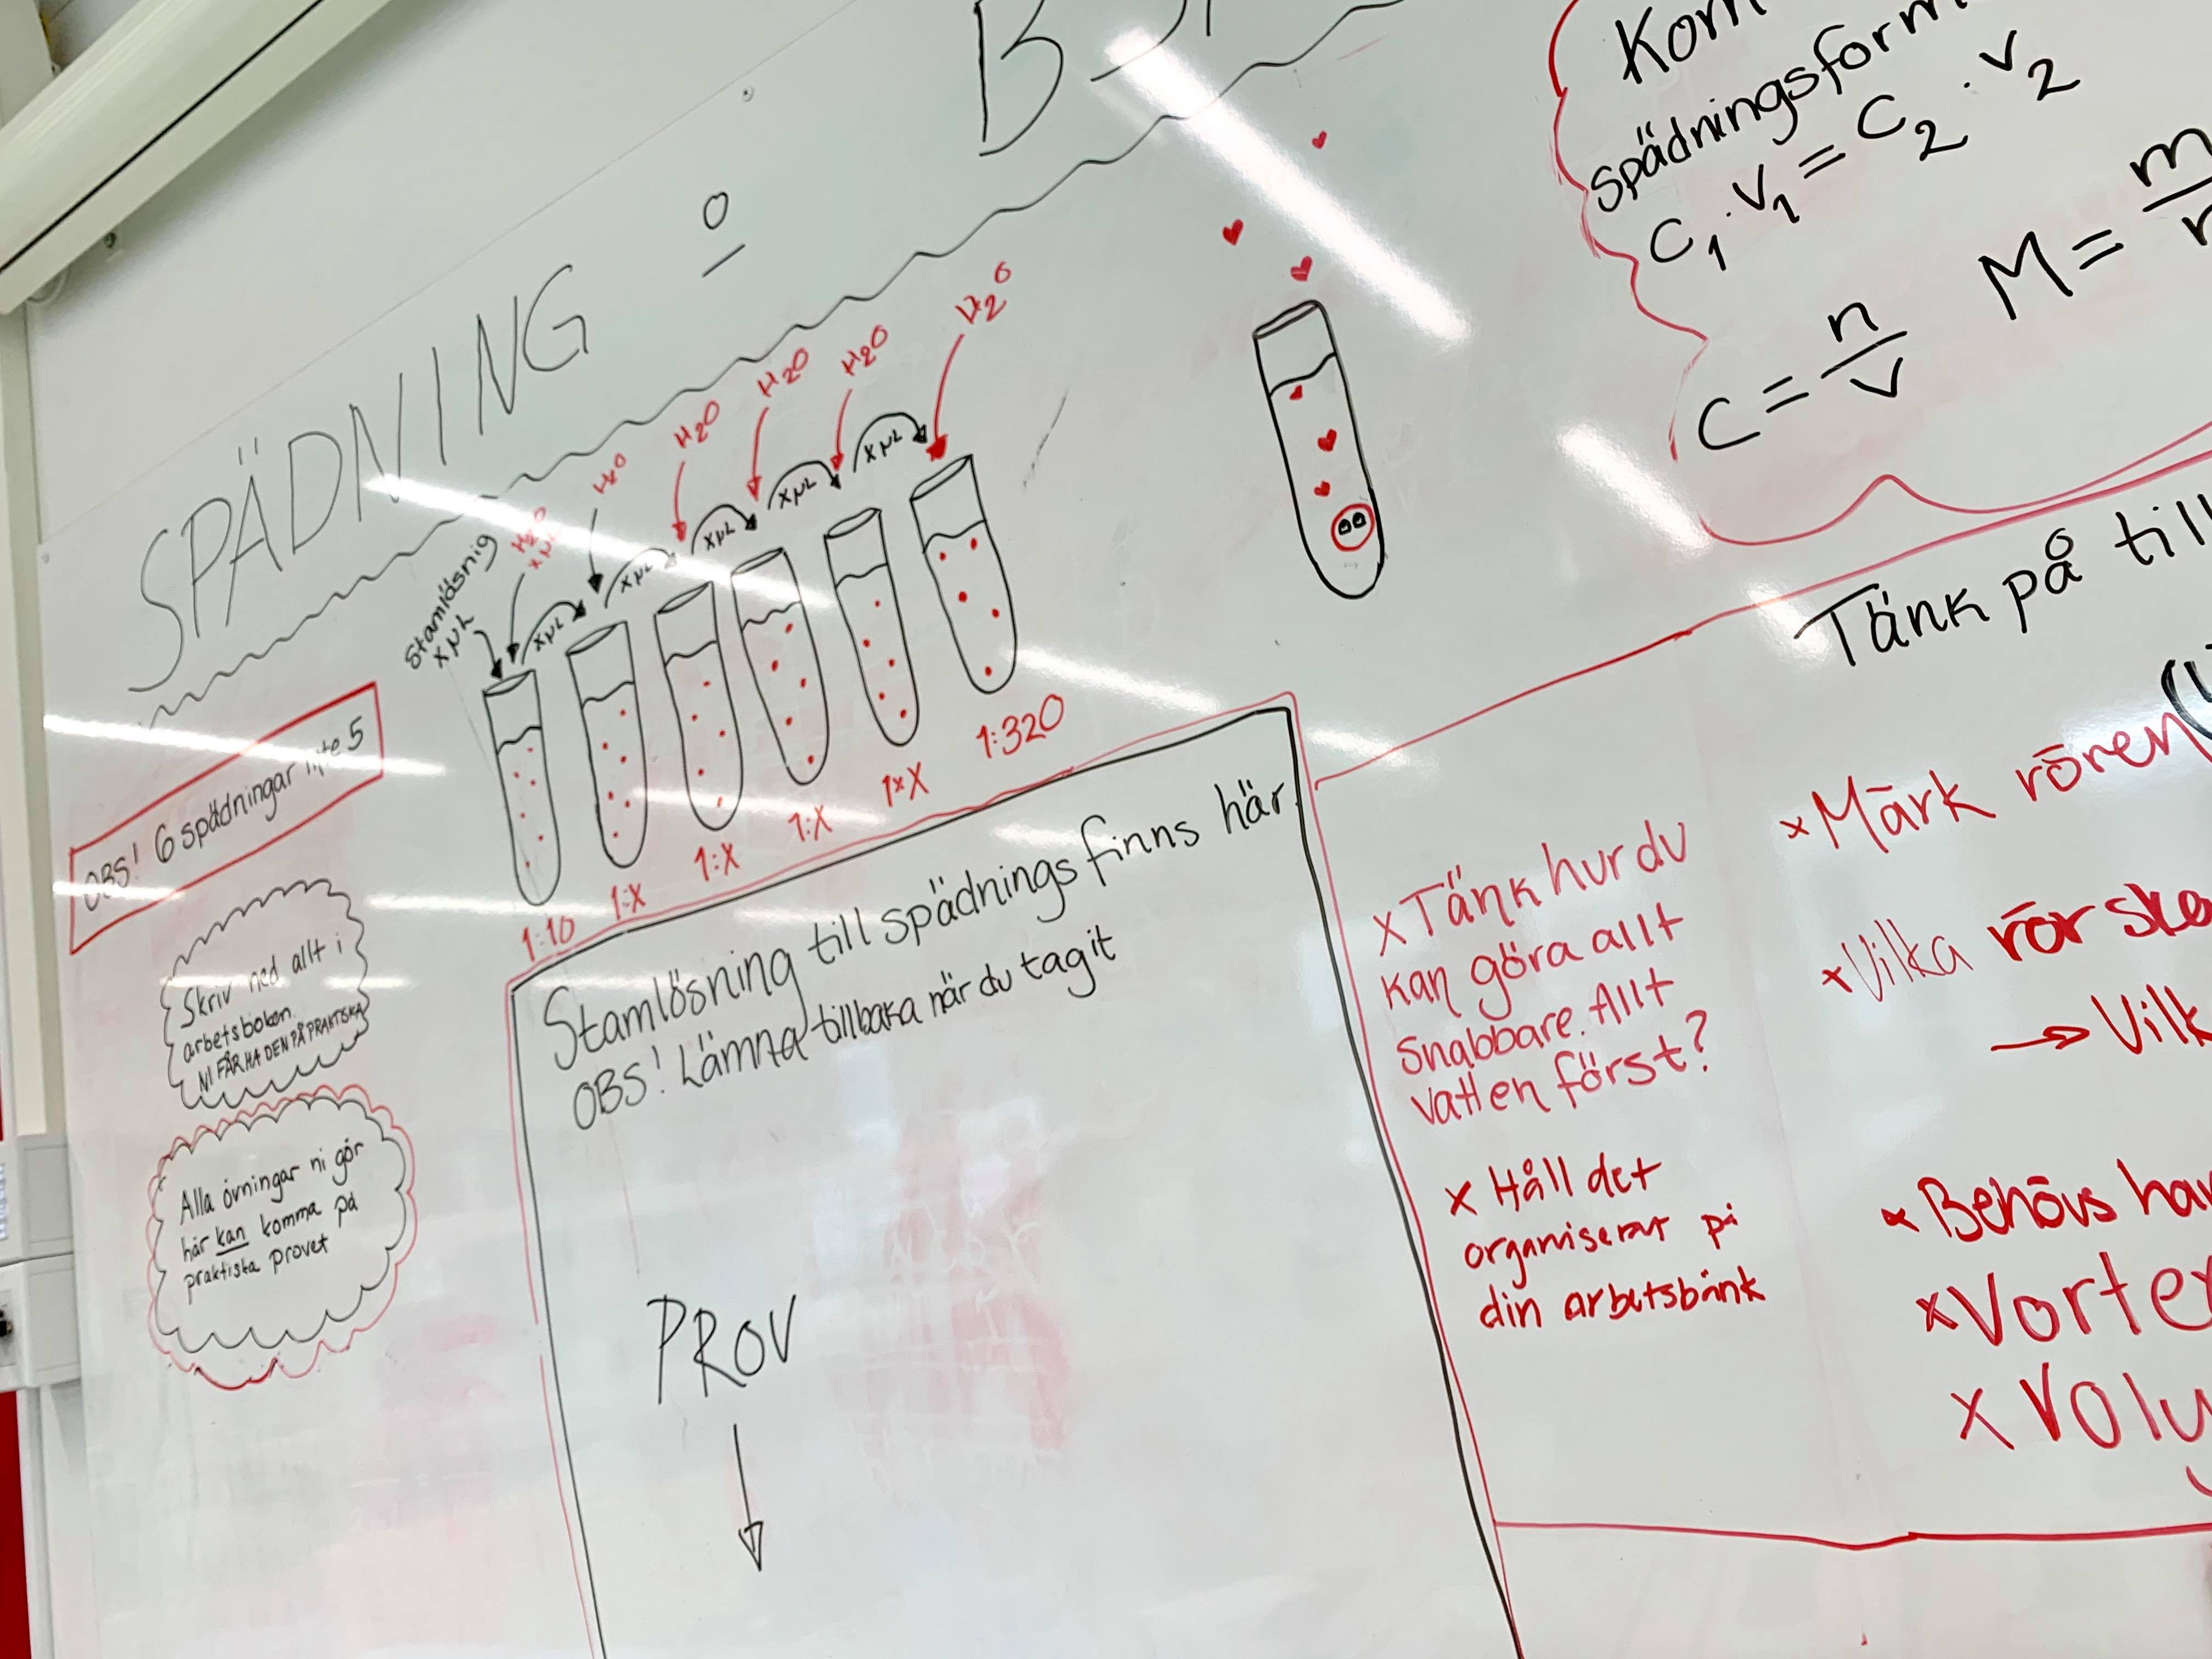 SPÄDNING
Kom
spädningsform
C₁ · V₁ = C₂ · V₂
C = n/V
M = m
H₂O
H₂O
H₂O
H₂O
H₂O
H₂O
Stamlösnig
XµL
XµL
XµL
XµL
XµL
XµL
XµL
1:10
1:X
1:X
1:X
1:X
1:320
OBS! 6 spädningar inte 5
Skriv ned allt i
arbetsboken.
NI FÅR HA DEN PÅ PRAKTISKA
Alla övningar ni gör
här kan komma på
praktiska provet
Stamlösning till spädnings finns här
OBS! Lämna tillbaka när du tagit
PROV
Tänk på till
X Tänk hur du
kan göra allt
snabbare. Allt
vatten först?
X Håll det
organiserat på
din arbetsbänk
x Märk rören
x Vilka rör ska
→ Vilk
x Behövs
x Vortex
X Voly